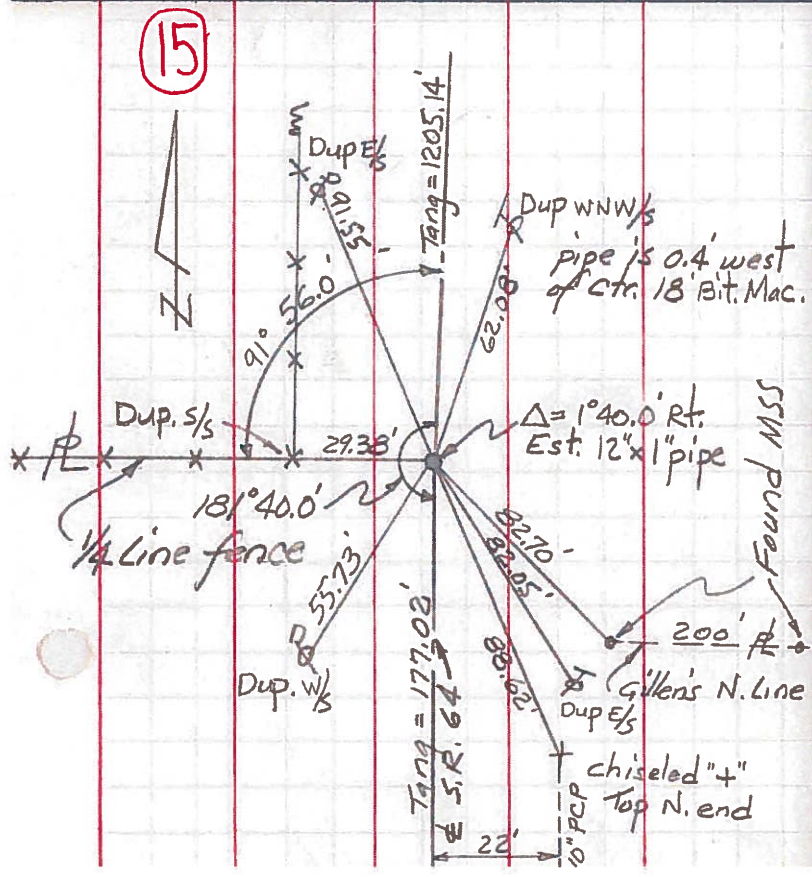 15
N
Dup E/s
91.55'
Tang = 1205.14'
Dup WNW/s
62.08'
pipe is 0.4' west
of Ctr. 18' Bit. Mac.
91° 56.0'
Dup. S/s
29.38'
Δ = 1°40.0' Rt.
Est. 12" x 1" pipe
PL
181°40.0'
1/4 Line fence
Found MSS
55.73'
82.70'
82.05'
88.62'
200' PL
Gillen's N. Line
Dup. W/s
Dup E/s
Tang = 177.02'
℄ S.R. 64
chiseled "+"
Top N. end
10" PCP
22'